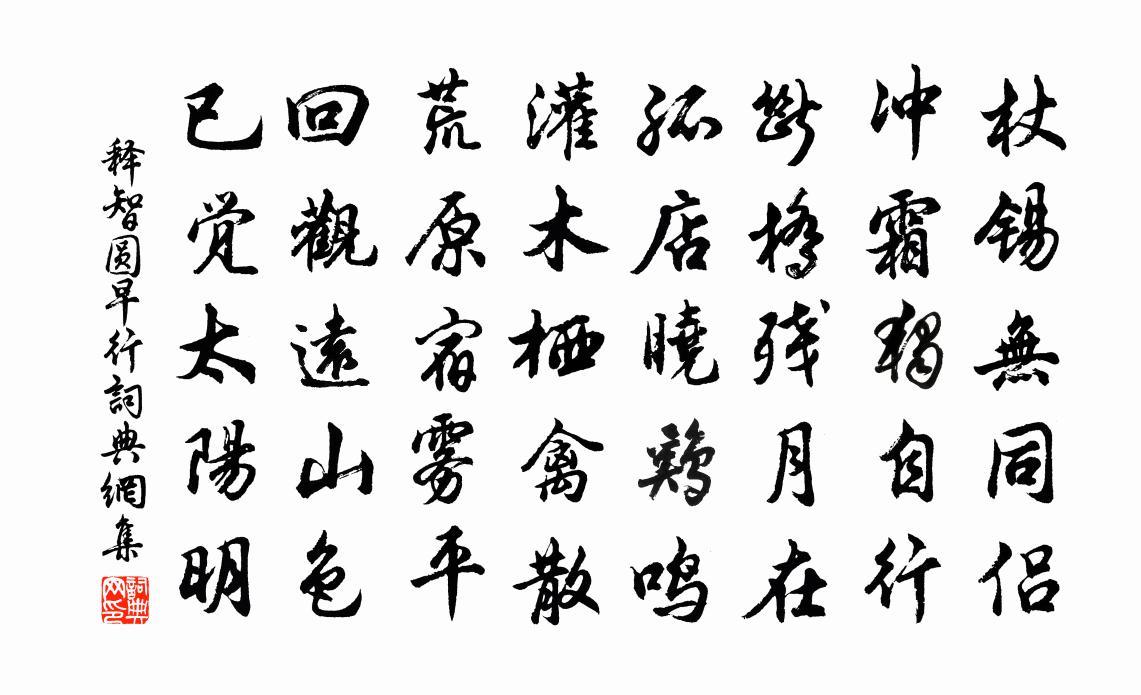 杖锡無同侣
冲霜独自行
断橋残月在
孤店曉鷄鸣
灌木栖禽散
荒原宿雾平
回觀遠山色
已觉太陽明
释智圆早行詞典網集
詞典网印